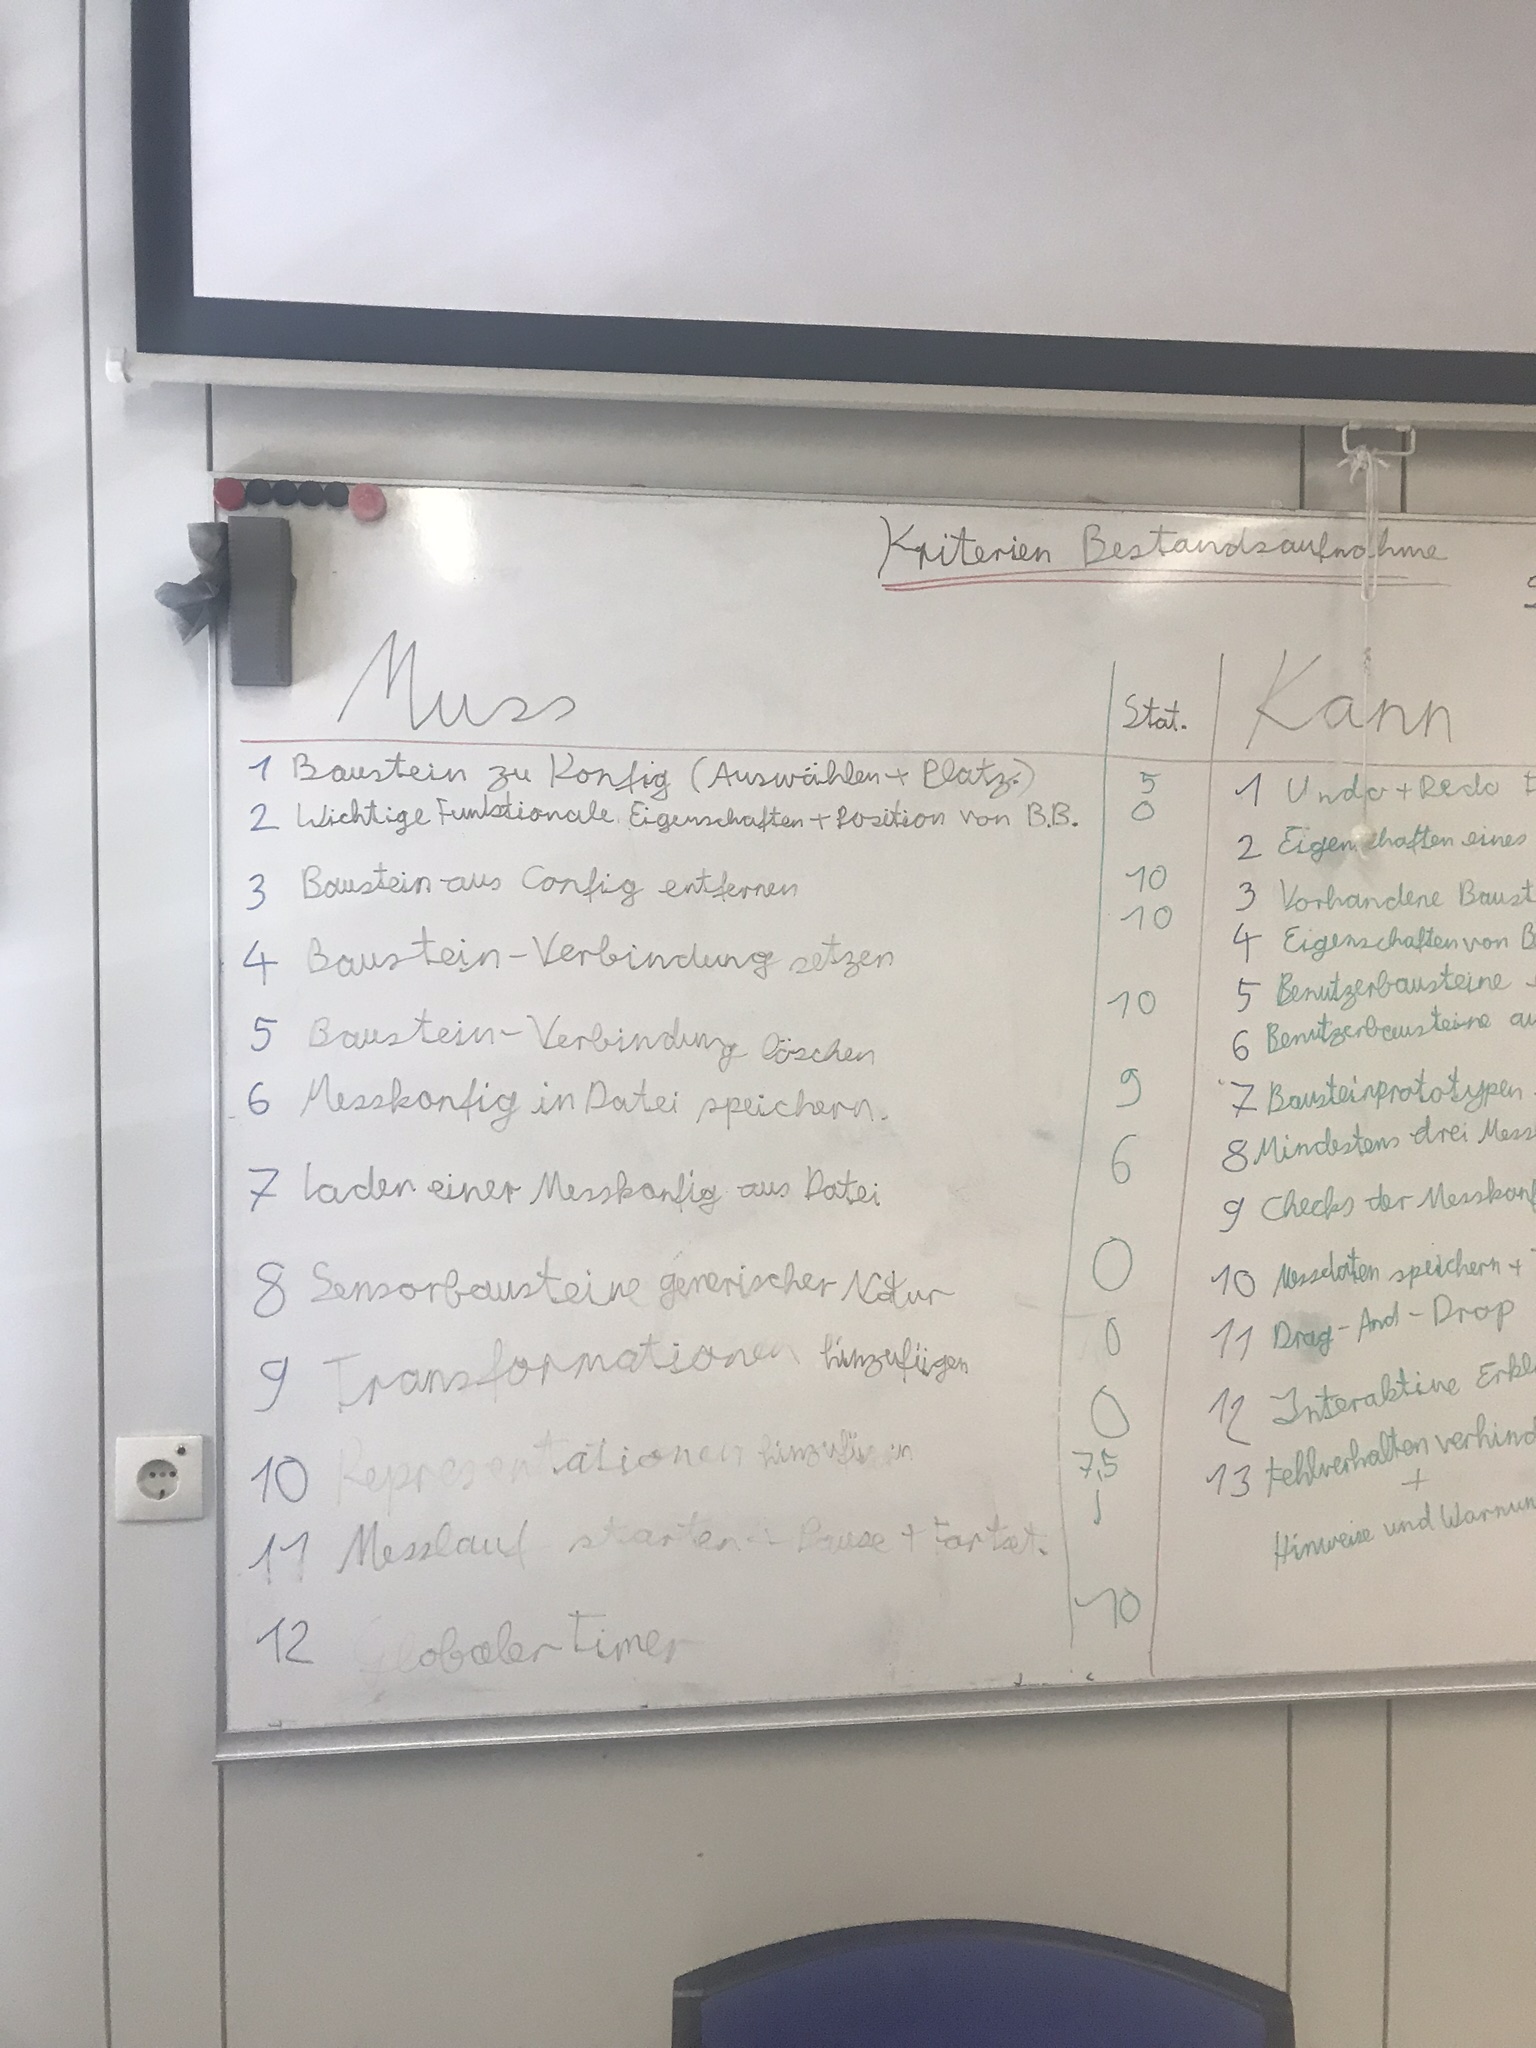 Kriterien Bestandsaufnahme
Muss Stat. Kann
1 Baustein zu Konfig (Auswählen + Platz.) 5
2 Wichtige Funktionale Eigenschaften + Position von B.B. 0
3 Baustein aus Config entfernen 10
4 Baustein-Verbindung setzen 10
5 Baustein-Verbindung löschen 10
6 Messkonfig in Datei speichern. 9
7 Laden einer Messkonfig aus Datei 6
8 Sensorbausteine generischer Natur 0
9 Transformationen hinzufügen 0
10 Representationen hinzufügen 0
11 Messlauf starten + Pause + Fortset. 7,5
12 Globaler Timer 10
1 Undo + Redo
2 Eigenschaften eines
3 Vorhandene Baust
4 Eigenschaften von B
5 Benutzerbausteine
6 Benutzerbausteine au
7 Bausteinprototypen
8 Mindestens drei Mess
9 Checks der Messkonf
10 Messdaten speichern +
11 Drag-And-Drop
12 Interaktive Erkl
13 Fehlverhalten verhind
+
Hinweise und Warnun